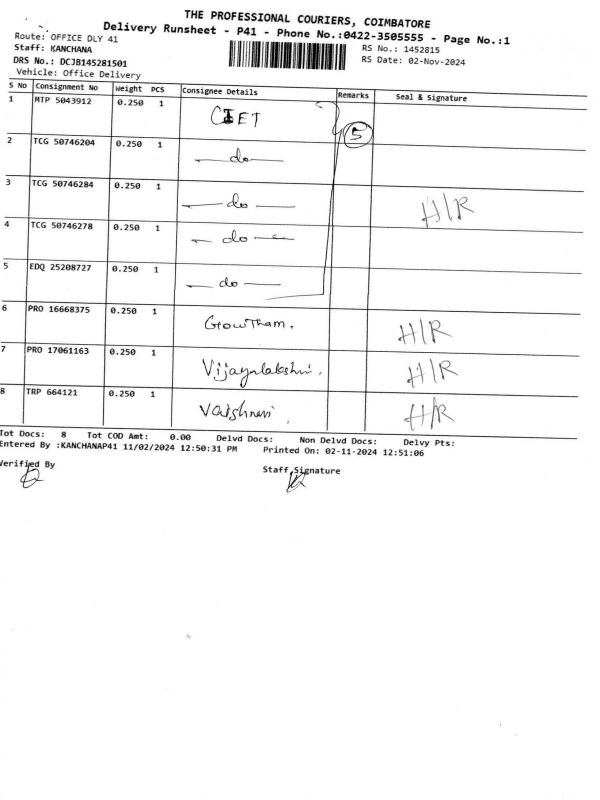 THE PROFESSIONAL COURIERS, COIMBATORE
Delivery Runsheet - P41 - Phone No.:0422-3505555 - Page No.:1
Route: OFFICE DLY 41
RS No.: 1452815
Staff: KANCHANA
RS Date: 02-Nov-2024
DRS No.: DCJB145281501
Vehicle: Office Delivery
S No Consignment No Weight PCS Consignee Details Remarks Seal & Signature
1 MTP 5043912 0.250 1 CIET 5
2 TCG 50746204 0.250 1 — do —
3 TCG 50746284 0.250 1 — do — H/R
4 TCG 50746278 0.250 1 — do —
5 EDQ 25208727 0.250 1 — do —
6 PRO 16668375 0.250 1 Gowtham. H/R
7 PRO 17061163 0.250 1 Vijayalakshmi. H/R
8 TRP 664121 0.250 1 Vaishnavi H/R
Tot Docs: 8 Tot COD Amt: 0.00 Delvd Docs: Non Delvd Docs: Delvy Pts:
Entered By :KANCHANAP41 11/02/2024 12:50:31 PM Printed On: 02-11-2024 12:51:06
Verified By
Staff Signature